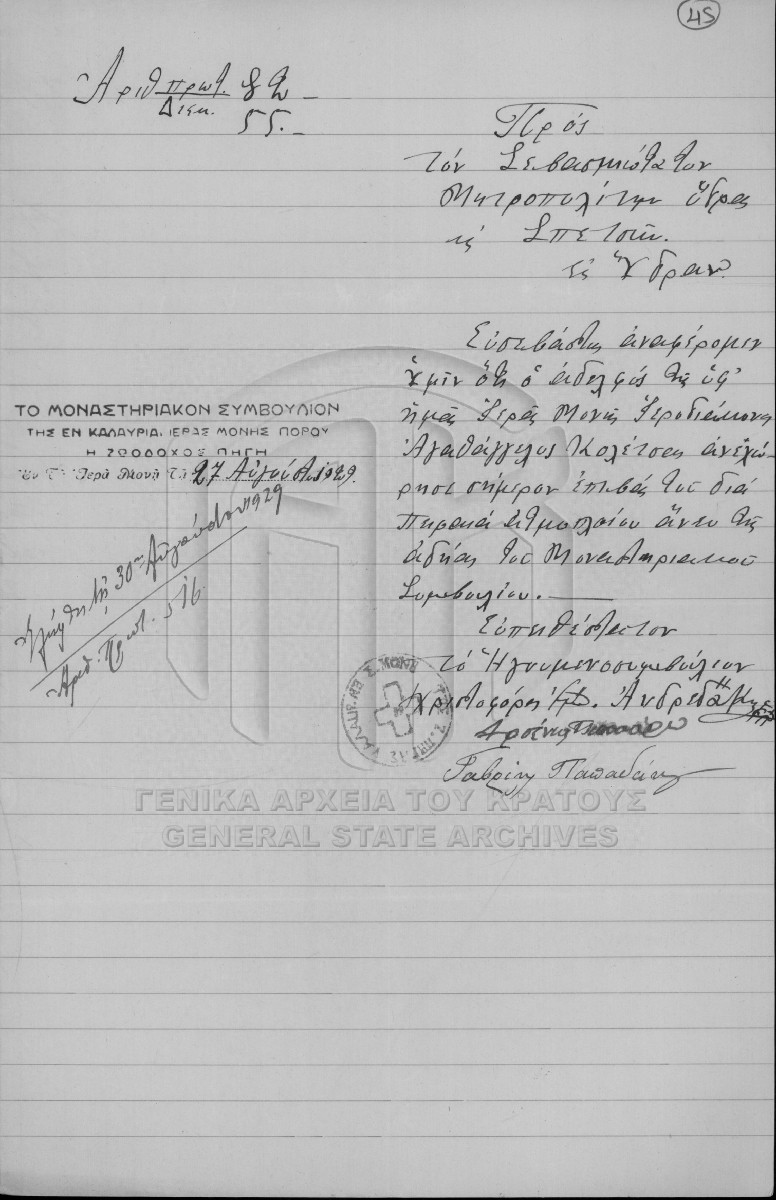 45
Ἀριθ πρωτ. 82
Διεκ. 55.
Πρός
τόν Σεβασμιώτατον
Μητροπολίτην Ὕδρας
κς Σπετσῶν.
εἰς Ὕδραν
Εὐσεβάστως ἀναφέρομεν
Ὑμῖν ὅτι ὁ ἀδελφός τῆς ὑφ'
ἡμᾶς Ἱερᾶς Μονῆς Ἱεροδιάκονος
Ἀγαθάγγελος Κολέτσας ἀνεχώ-
ρησε σήμερον ἐπιβάς τοῦ διά
Πειραιᾶ ἀτμοπλοίου ἄνευ τῆς
ἀδείας τοῦ Μοναστηριακοῦ
Συμβουλίου.
ΤΟ ΜΟΝΑΣΤΗΡΙΑΚΟΝ ΣΥΜΒΟΥΛΙΟΝ
ΤΗΣ ΕΝ ΚΑΛΑΥΡΙΑ. ΙΕΡΑΣ ΜΟΝΗΣ ΠΟΡΟΥ
Η ΖΩΟΔΟΧΟΣ ΠΗΓΗ
Ἐν Τῇ Ἱερᾷ Μονῇ Τῇ 27 Αὐγούστου 1929.
Ἐλήφθη τῇ 30ῃ Αὐγούστου 1929
Ἀριθ. Πρωτ. 516.
Εὐπειθέστατον
τό Ἡγουμενοσυμβούλιον
Χριστοφόρος Ἀνδρεδάκης
Ἀρσένιος
Γαβριήλ Παπαδάκης
ΓΕΝΙΚΑ ΑΡΧΕΙΑ ΤΟΥ ΚΡΑΤΟΥΣ
GENERAL STATE ARCHIVES